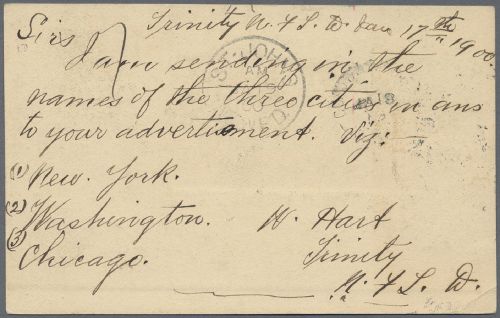 Trinity N. F L. D. Jan 17th 1900.
Sirs
I am sending in the
names of the three cities in ans
to your advertisement. Viz:
(1) New. York.
(2) Washington.
(3) Chicago.
W. Hart
Trinity
N. F L. D.
ST. JOHN'S
AM